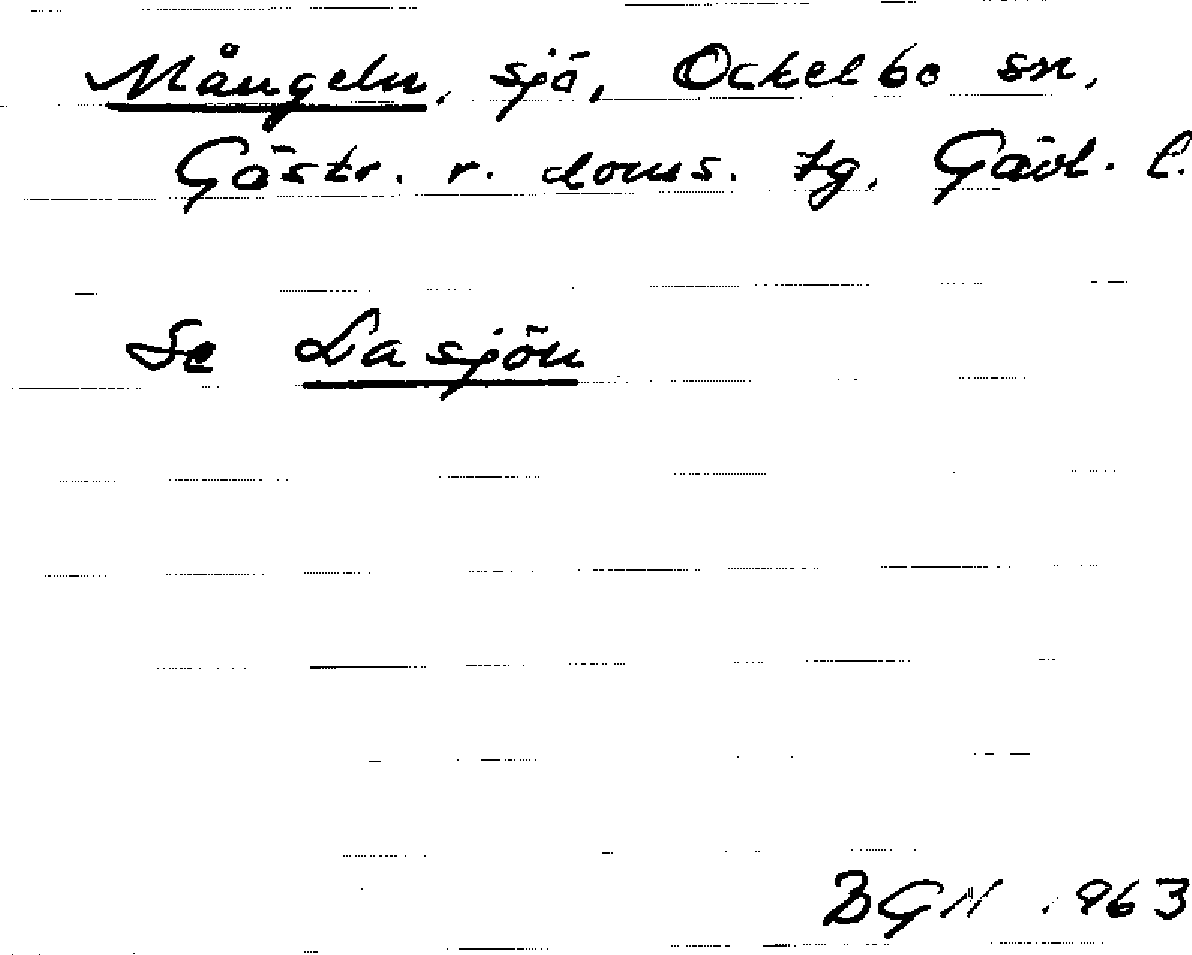 Mångeln, sjö, Ockelbo sn,
Gästr. v. doms. tg, Gävl. l.
Se Lasjön
BGN 1963